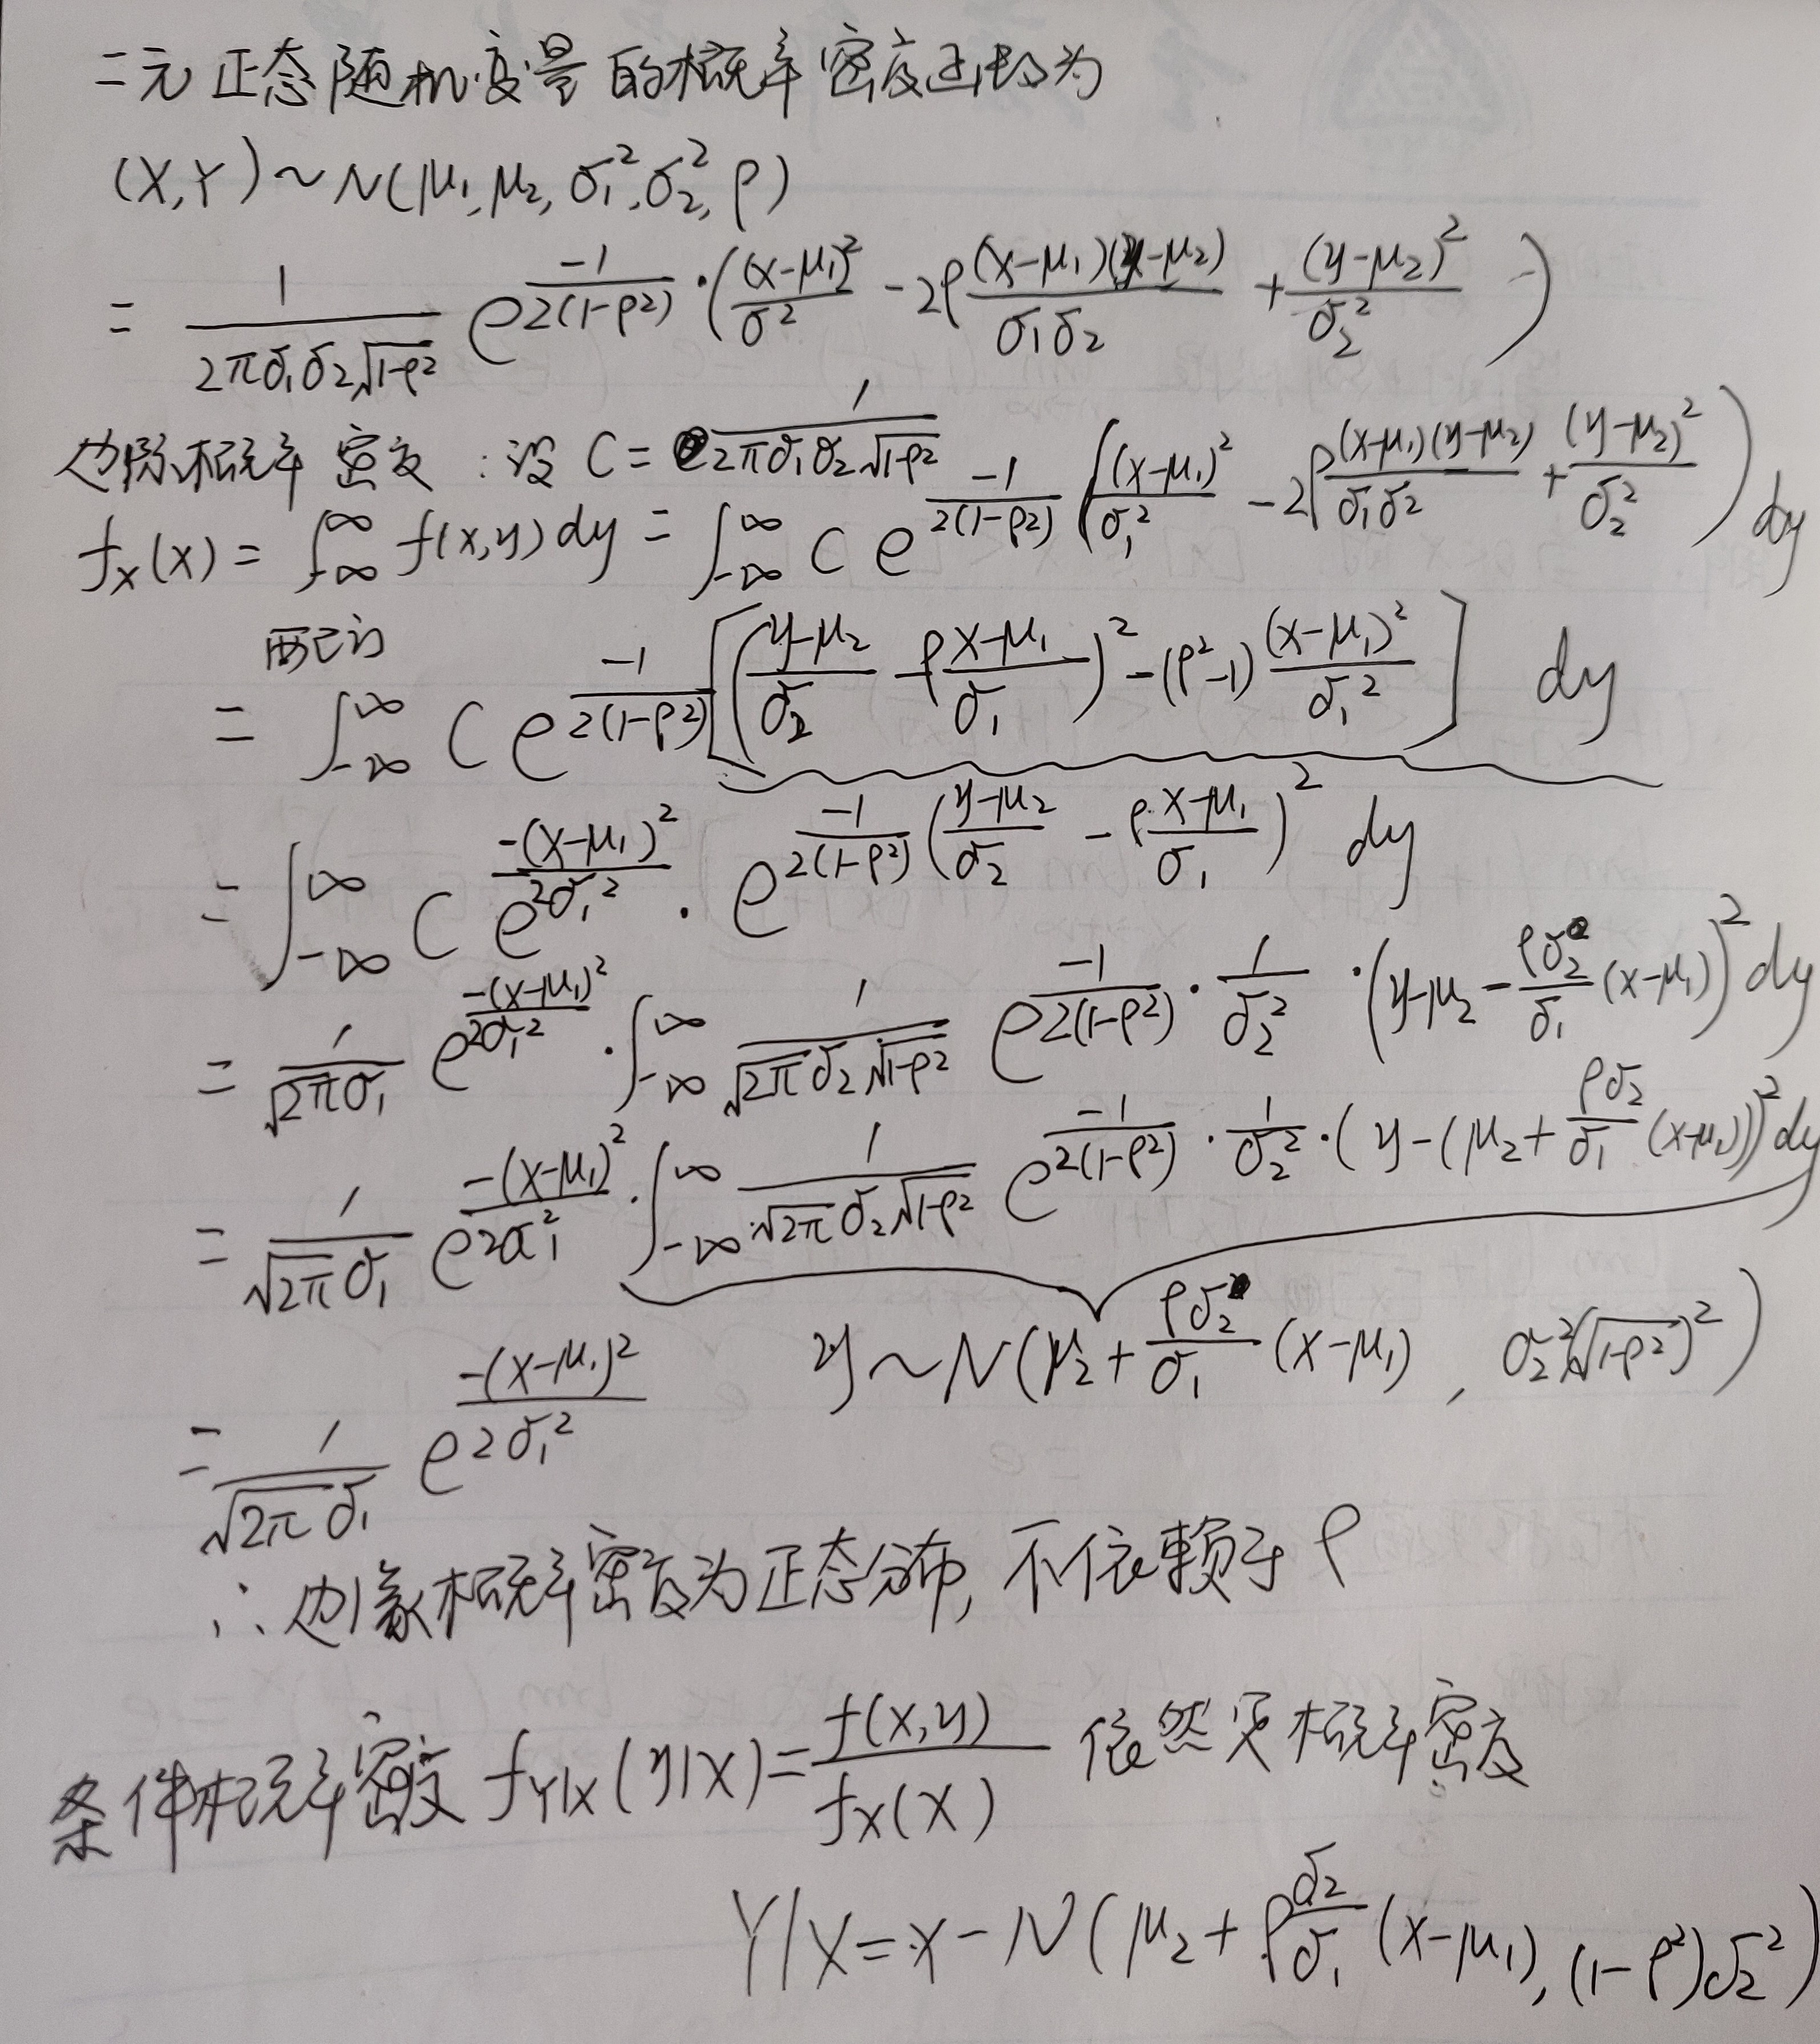 二元正态随机变量的概率密度函数为
(X,Y)~N(μ₁,μ₂,σ₁²,σ₂²,ρ)
= 1/(2πσ₁σ₂√(1-ρ²)) e^{-1/(2(1-ρ²))·((x-μ₁)²/σ² - 2ρ(x-μ₁)(y-μ₂)/(σ₁σ₂) + (y-μ₂)²/σ₂²)}
边际概率密度:设 C = 1/(2πσ₁σ₂√(1-ρ²))
f_X(x) = ∫_{-∞}^{∞} f(x,y)dy = ∫_{-∞}^{∞} C e^{-1/(2(1-ρ²)) ((x-μ₁)²/σ₁² - 2ρ(x-μ₁)(y-μ₂)/(σ₁σ₂) + (y-μ₂)²/σ₂²)} dy
配方
= ∫_{-∞}^{∞} C e^{-1/(2(1-ρ²)) [((y-μ₂)/σ₂ - ρ(x-μ₁)/σ₁)² - (ρ²-1)(x-μ₁)²/σ₁²]} dy
= ∫_{-∞}^{∞} C e^{-(x-μ₁)²/(2σ₁²)} · e^{-1/(2(1-ρ²)) ((y-μ₂)/σ₂ - ρ(x-μ₁)/σ₁)²} dy
= 1/(√2π σ₁) e^{-(x-μ₁)²/(2σ₁²)} · ∫_{-∞}^{∞} 1/(√2π σ₂√(1-ρ²)) e^{-1/(2(1-ρ²)) · 1/σ₂² · (y-μ₂-ρσ₂/σ₁(x-μ₁))²} dy
= 1/(√2π σ₁) e^{-(x-μ₁)²/(2σ₁²)} · ∫_{-∞}^{∞} 1/(√2π σ₂√(1-ρ²)) e^{-1/(2(1-ρ²)) · 1/σ₂² · (y-(μ₂+ρσ₂/σ₁(x-μ₁)))²} dy
y~N(μ₂+ρσ₂/σ₁(x-μ₁), σ₂²(√(1-ρ²))²)
= 1/(√2π σ₁) e^{-(x-μ₁)²/(2σ₁²)}
∴边缘概率密度为正态分布,不依赖于ρ
条件概率密度 f_{Y|X}(y|x) = f(x,y)/f_X(x) 依然是概率密度
Y|X=x - N(μ₂+ρσ₂/σ₁(x-μ₁), (1-ρ²)σ₂²)